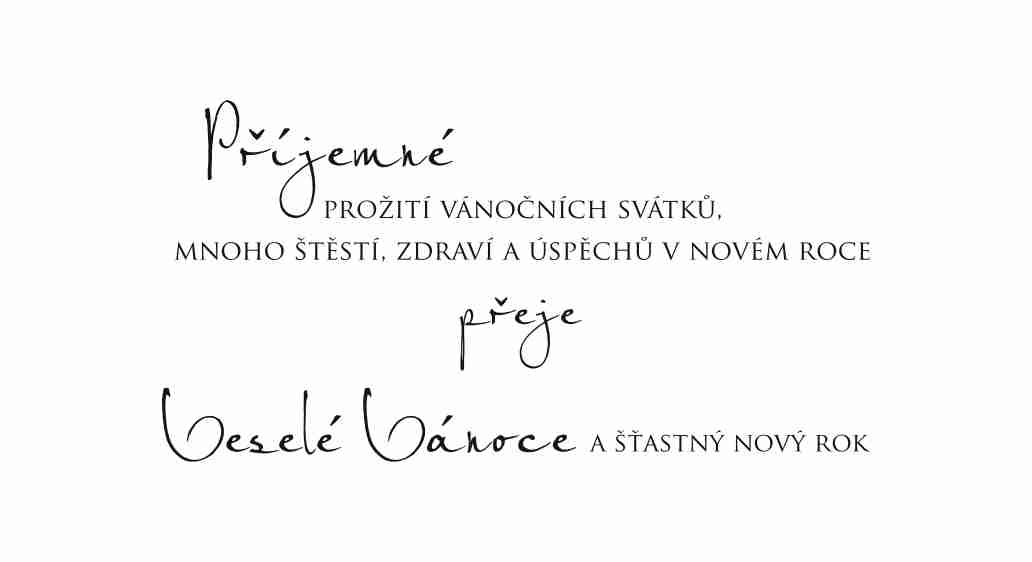 Příjemné
PROŽITÍ VÁNOČNÍCH SVÁTKŮ,
MNOHO ŠTĚSTÍ, ZDRAVÍ A ÚSPĚCHŮ V NOVÉM ROCE
přeje
Veselé Vánoce A ŠŤASTNÝ NOVÝ ROK